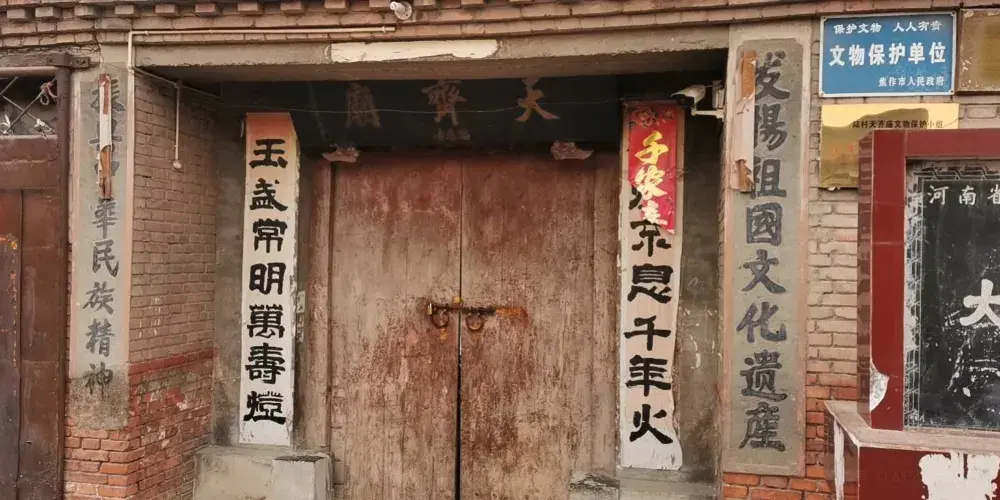 保护文物 人人有责
文物保护单位
焦作市人民政府
村天齐庙文物保护小组
天齊廟
發揚祖國文化遺產
振興中華民族精神
息千年火
玉盏常明萬壽燈
河南省
大